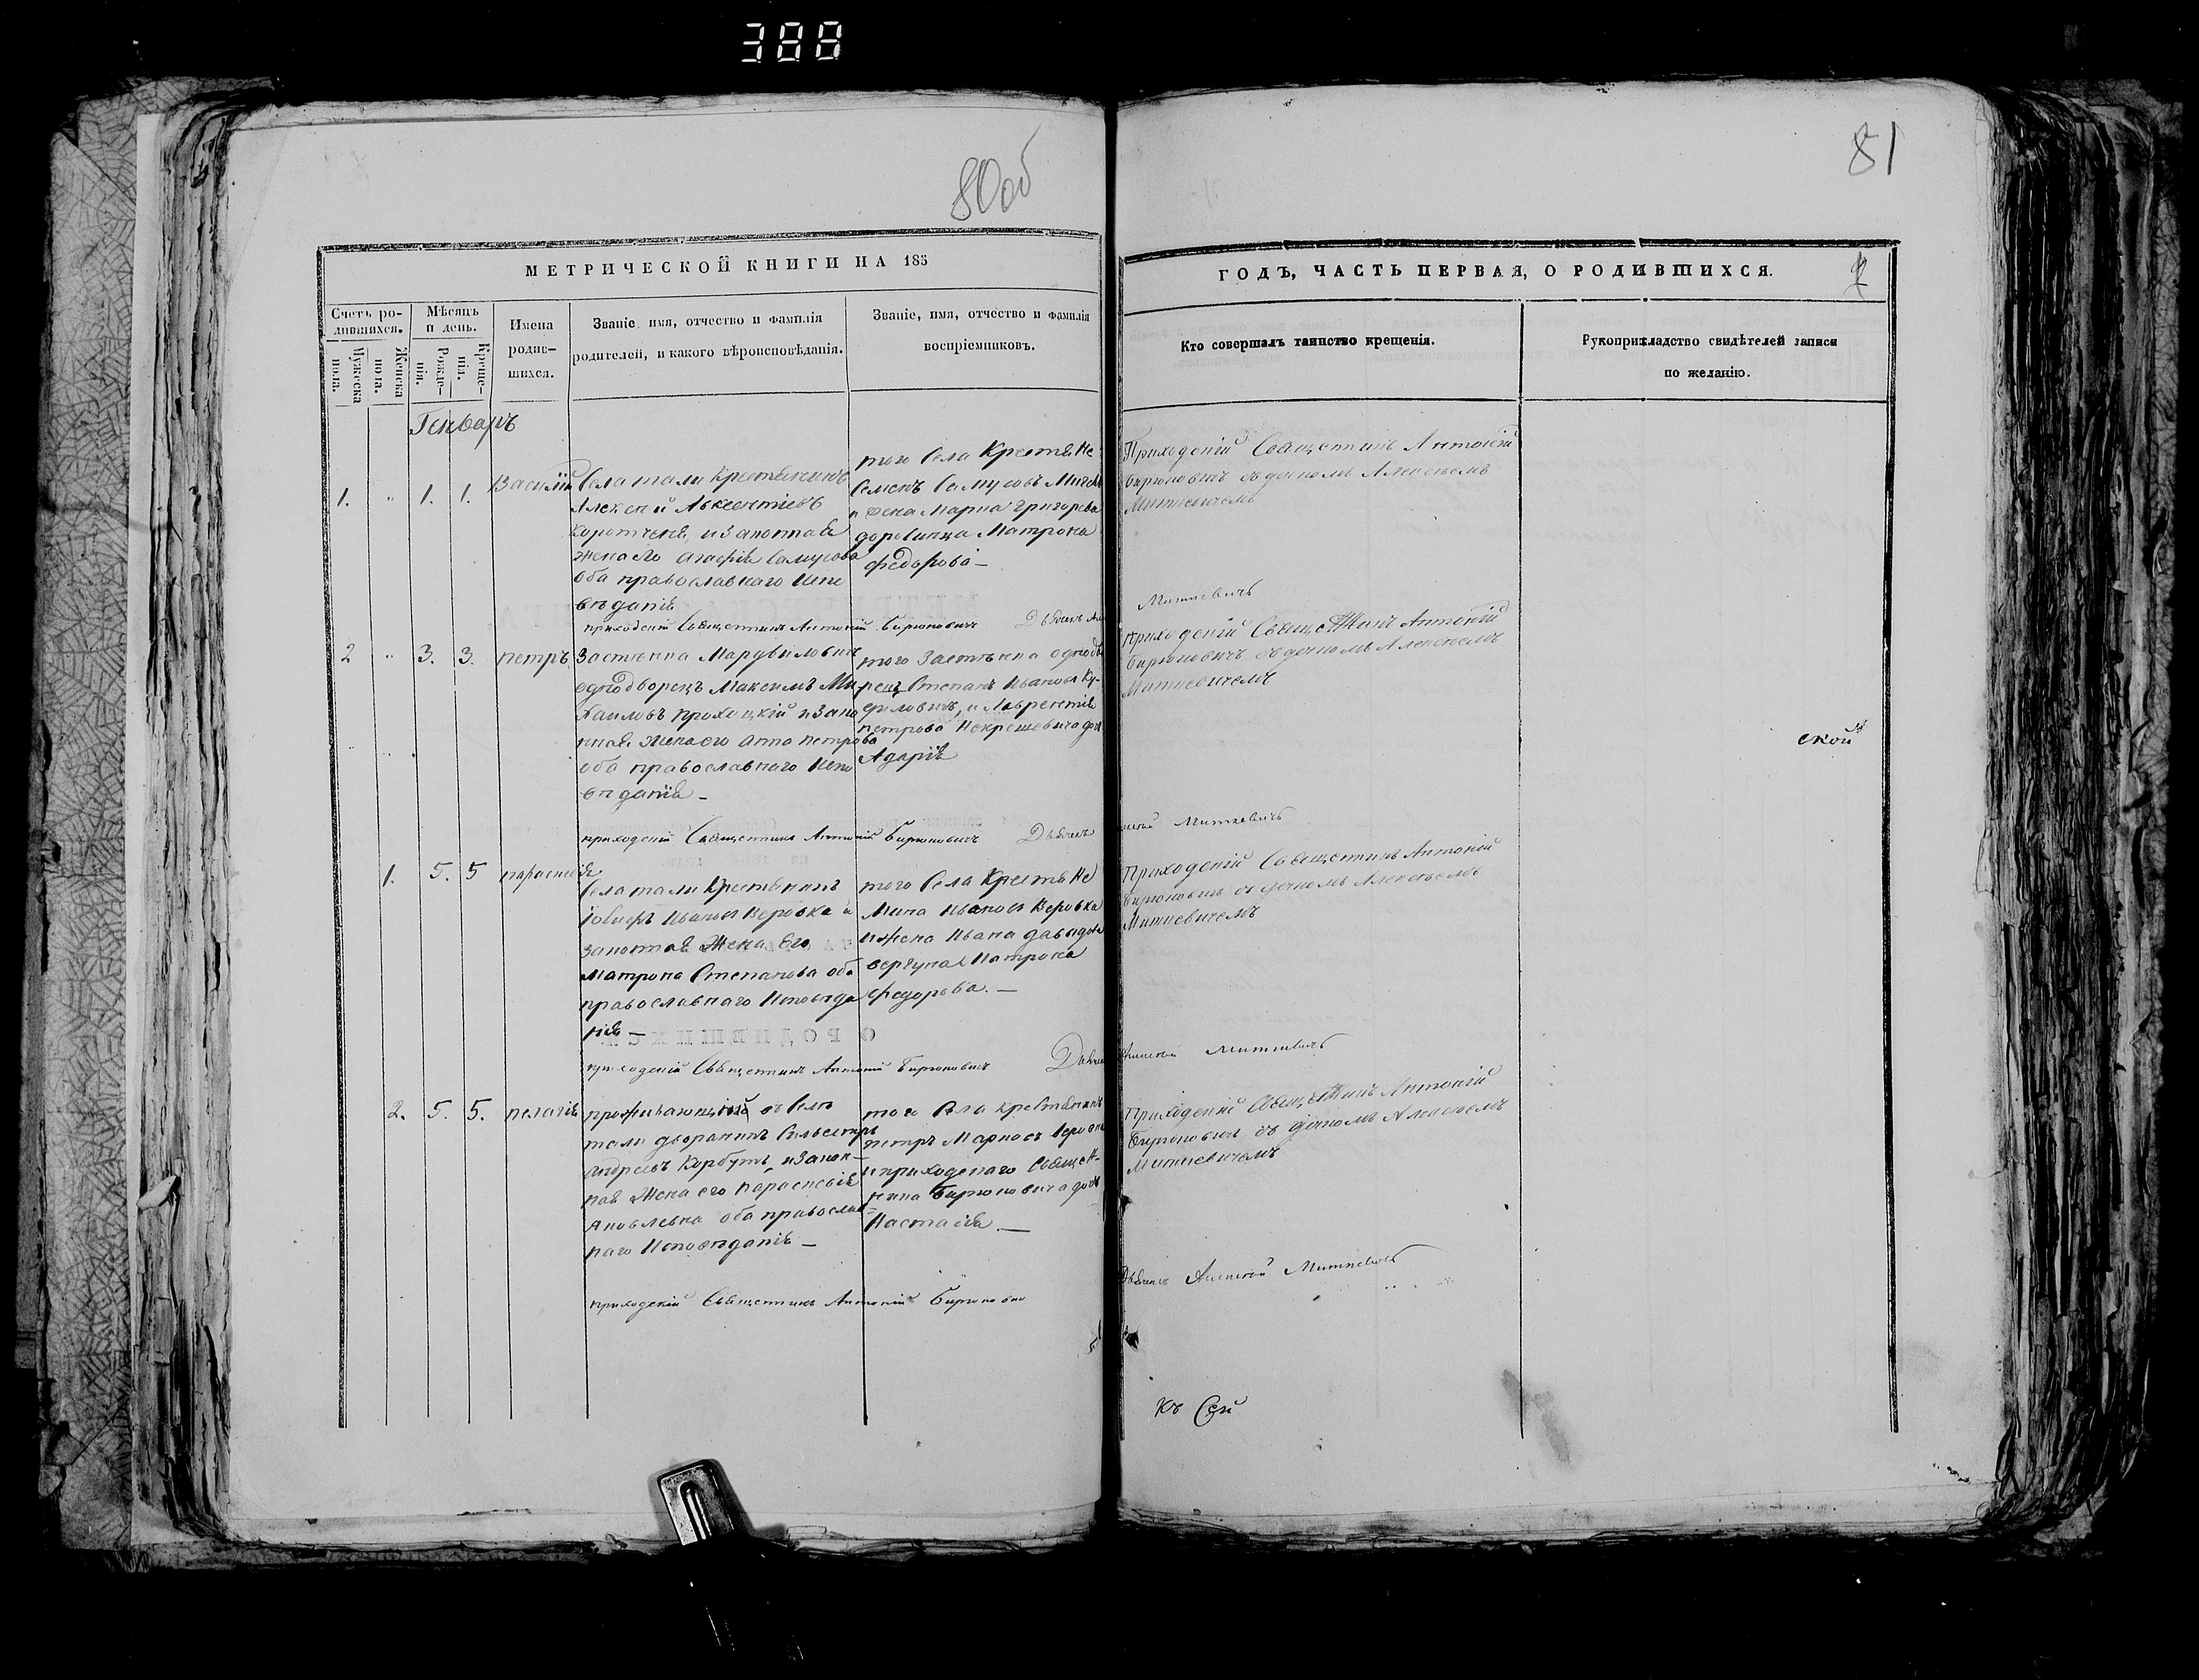 388
80об
81
МЕТРИЧЕСКОЙ КНИГИ НА 185
ГОДЪ, ЧАСТЬ ПЕРВАЯ, О РОДИВШИХСЯ.
2
Счетъ ро-
дившихся.
Мужеска
пола.
Женска
пола.
Мѣсяцъ
и день.
Рожде-
нія.
Креще-
нія.
Имена
родив-
шихся.
Званіе имя, отчество и фамилія
родителей, и какого вѣроисповѣданія.
Званіе, имя, отчество и фамилія
воспріемниковъ.
Кто совершалъ таинство крещенія.
Рукоприкладство свидѣтелей записи
по желанію.
Генварь
1. " 1. 1. Василій
Села тали Крестьянинъ
Алексѣй Авксентіевъ
законная
жена Его Самусова
оба православнаго Испо
вѣданія
того Села Крестьяне
Семенъ Самусовъ
и жена Марна Григорева
Матрона
Федорова —
Приходскій Священникъ Антоній
Бирюковичъ съ дячкомъ Алексѣемъ
Миткевичемъ
приходскій Священникъ Антоній Бирюковичъ Дьячекъ
Миткевичъ
2 " 3. 3. петръ
Застѣнка
однодворецъ Максимъ Ми
хаиловъ и зако
нная жена его Анна петрова
оба православнаго Испо
вѣданія —
того Застѣнка одноДво
рец Степанъ Ивановъ
и
петрова Некрашевича доч
Приходскій Священникъ Антоній
Бирюковичъ съ дячкомъ Алексѣемъ
Миткевичемъ
ской
приходскій Священникъ Антоній Бирюковичъ Дьячекъ
Миткевичъ
1. 5. 5 параскевія
Села тали Крестьянинъ
Іосифъ Ивановъ Веровка и
законная Жена Его
Матрона Степанова оба
православнаго Исповѣда
нія —
того Села Крестьяне
Мина Ивановъ Веровка
и жена Ивана давыдова
Матрона
Федорова. —
Приходскій Священникъ Антоній
Бирюковичъ съ дячкомъ Алексѣемъ
Миткевичемъ
приходскій Священникъ Антоній Бирюковичъ Дьячекъ
Алексѣй Миткевичъ
2. 5. 5. пелагія
проживающій въ Селѣ
тали дворянинъ Сильвестръ
Андреевъ Корбутъ, и закон-
ная Жена его Параскевія
Яковлевна оба православ=
наго Исповѣданія —
того Села крестьянинъ
петръ Марковъ
и приходскаго Священ-
ника Бирюковича дочь
Настасія. —
Приходскій Священникъ Антоній
Бирюковичъ съ дячкомъ Алексѣемъ
Миткевичемъ
Дьячекъ Алексѣй Миткевичъ
приходскій Священникъ Антоній Бирюковичъ
Къ Сей